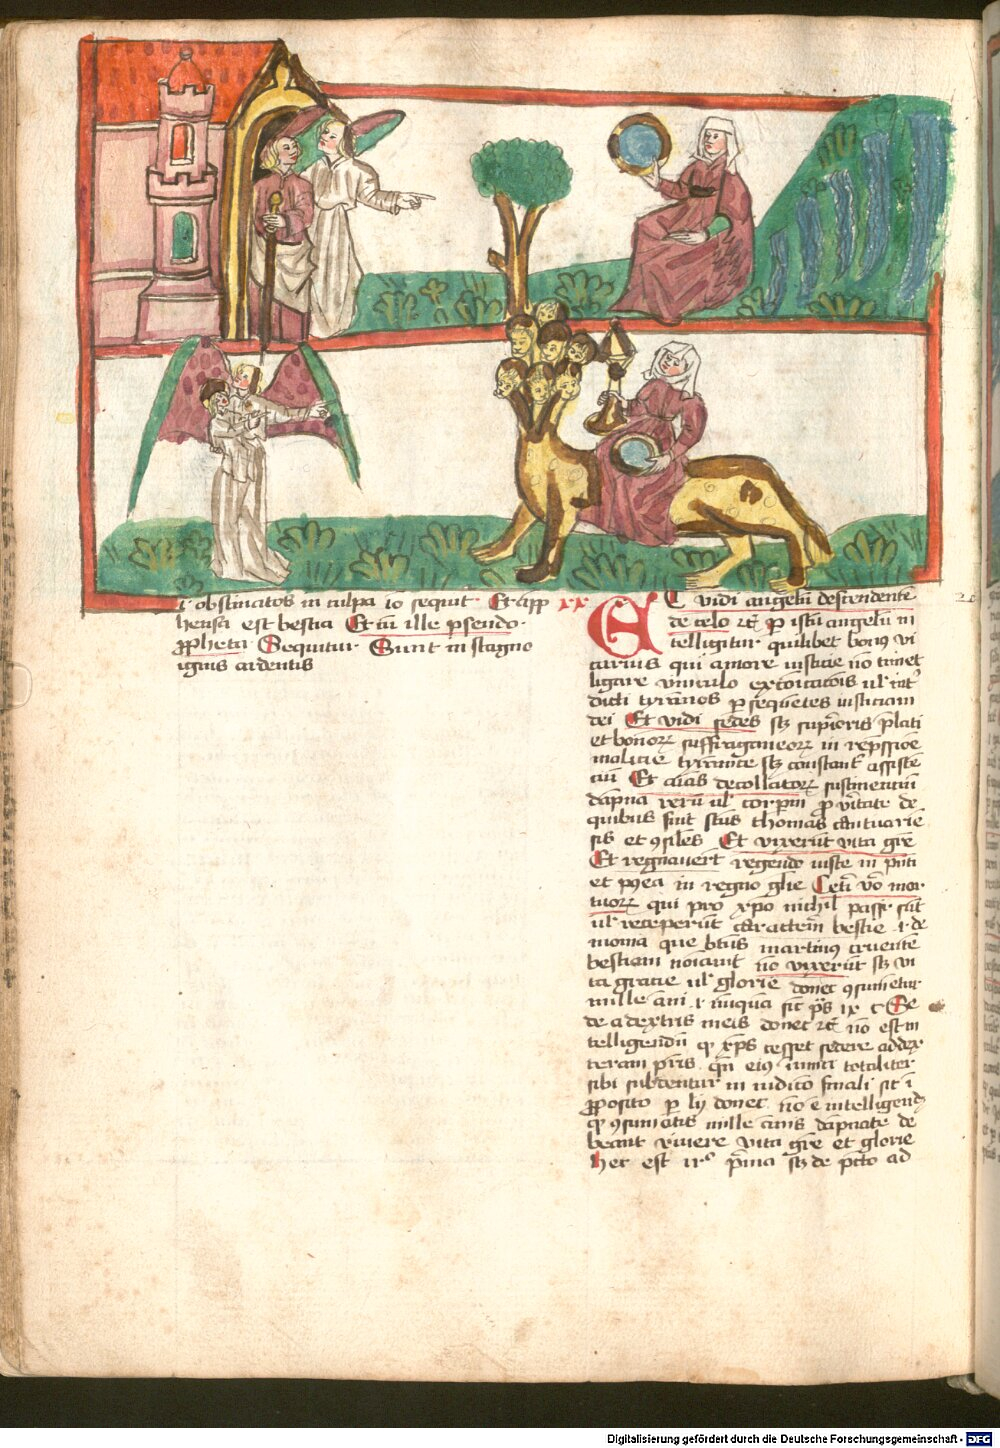 i obstinatos in culpa io sequit Et app
hensa est bestia Et cu ille pseudo
ppheta Sequitur Sunt in stagno
ignis ardentis
xx
Et vidi angelu descendente
de celo rc p istu angelu in
telligitur quilibet bonus vi
carius qui amore iusticie no timet
ligare vinculo excoicatois ul int
dicti tyranos psequetes iusticiam
dei Et vidi sedes sz supioris plati
et bonorz suffraganeorz in repssioe
malicie tyranice sz constant assiste
ciu Et aias decollatorz sustinentiu
dapna reru ul corpm p vitate de
quibus sunt scus thomas cantuarie
sis et 9siles Et vixerut vita gre
Et regnavert regendo iuste in pnti
et postea in regno glie Ceti vo mor
tuorz qui pro xpo nichil passi sut
ul receperut caractem bestie i de
monia que btus martinus cruente
bestiam noiavit no vixerut sz vi
ta gracie ul glorie donec 9sumetur
mille ani i nuqua sic ps ix c Se
de a dextris meis donec rc no est in
telligendu q xps cesset sedere ad dex
teram pris qn eius inimici totaliter
sibi subdentur in iudicio finali sic i
pposito p ly donec no e intelligend
q 9sumatis mille annis dapnati de
beant vivere vita gre et glorie
hec est prima sz de pcto ad
Digitalisierung gefördert durch die Deutsche Forschungsgemeinschaft - DFG